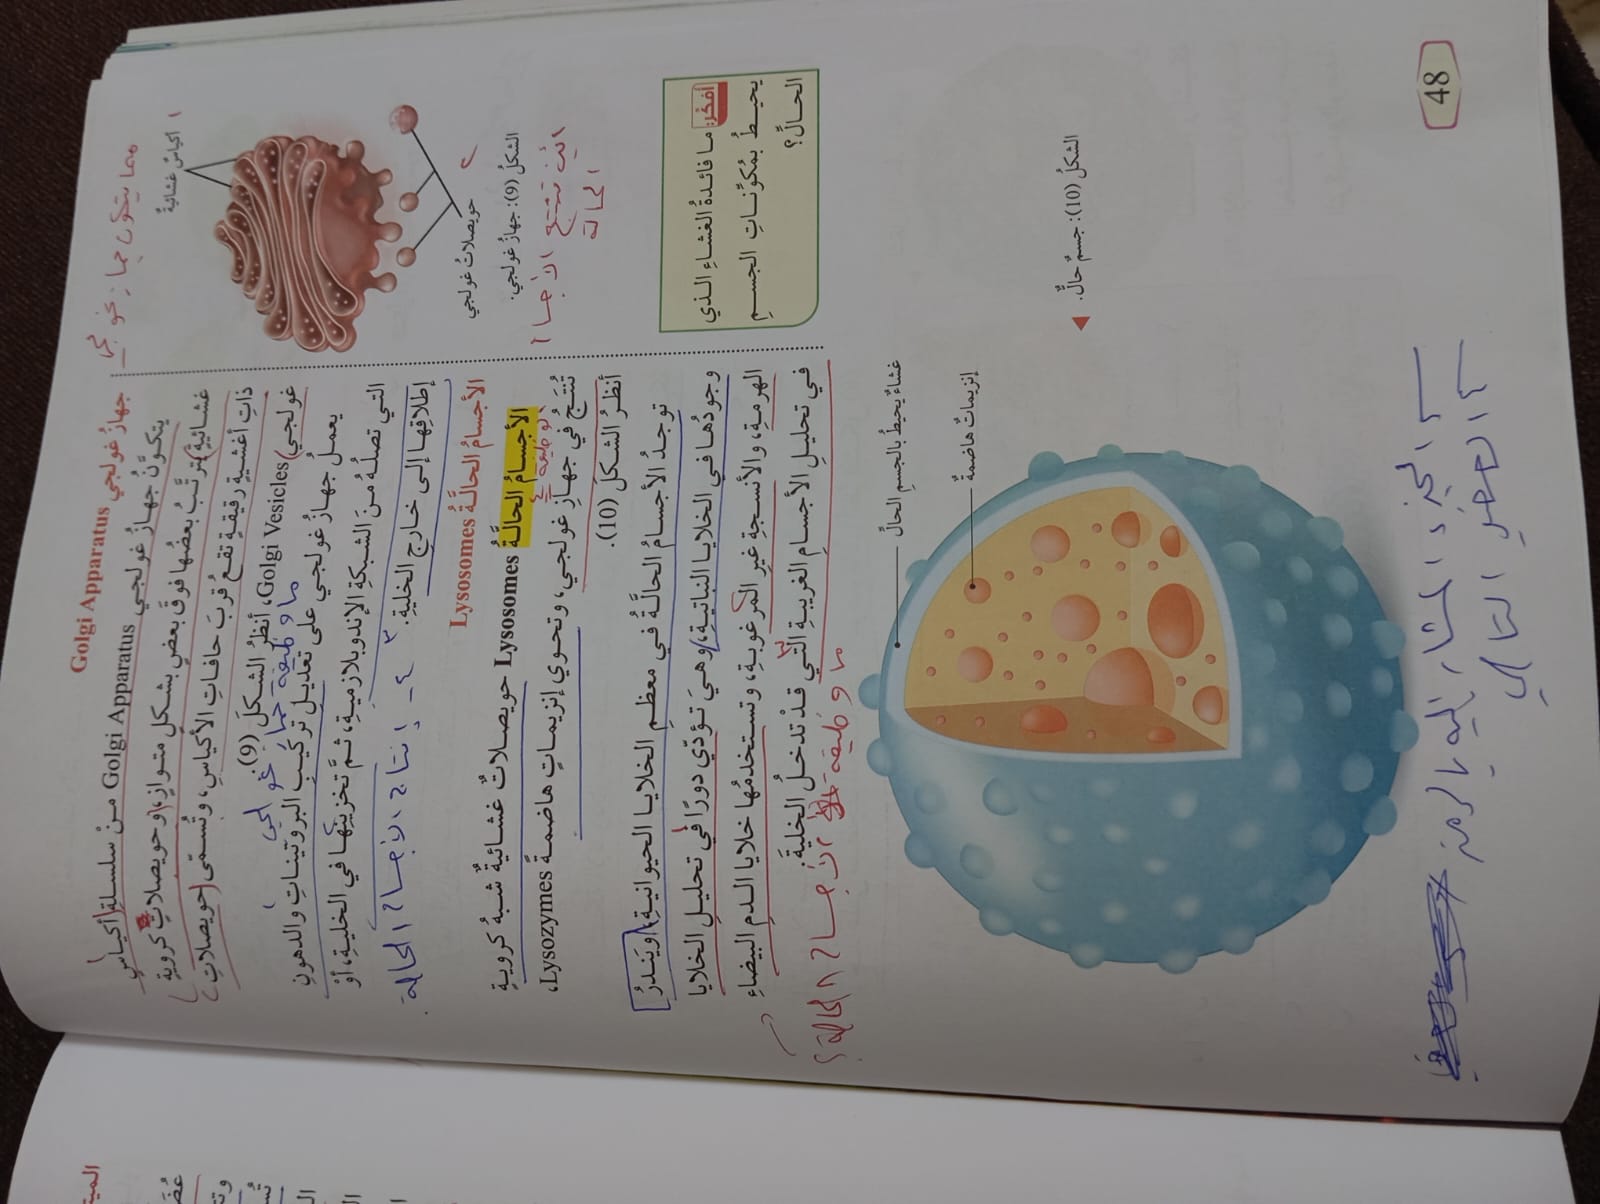 جهازُ غولجي Golgi Apparatus
يتكوَّنُ جهازُ غولجي Golgi Apparatus منْ سلسلةِ أكياسٍ
غشائيةٍ ترتَّبُ بعضُها فوقَ بعضٍ بشكلٍ متوازٍ، وحويصلاتٍ كرويةٍ
ذاتِ أغشيةٍ رقيقةٍ تقعُ قُربَ حافاتِ الأكياسِ، وتُسمّى (حويصلاتِ
غولجي) Golgi Vesicles، أنظرُ الشكلَ (9).
ما وظيفة جهاز غولجي
يعملُ جهازُ غولجي على تعديلِ تركيبِ البروتيناتِ والدهونِ
التي تصلُهُ منَ الشبكةِ الإندوبلازميةِ، ثمَّ تخزينِها في الخليةِ، أوْ
إطلاقِها إلى خارجِ الخليةِ.
٣
٤- إنتاج الأجسام الحالة
الأجسامُ الحالَّةُ Lysosomes
الأجسامُ الحالَّةُ Lysosomes حويصلاتٌ غشائيةٌ شبهُ كرويةٍ
تُنتَجُ في جهازِ غولجي، وتحوي إنزيماتٍ هاضمةً Lysozymes،
أنظرُ الشكلَ (10).
توجدُ الأجسامُ الحالَّةُ في معظمِ الخلايا الحيوانيةِ، ويَندُرُ
وجودُها في الخلايا النباتيةِ، وهيَ تؤدّي دورًا في تحليلِ الخلايا
الهرمةِ، والأنسجةِ غيرِ المرغوبةِ، وتستخدمُها خلايا الدمِ البيضاءِ
في تحليلِ الأجسامِ الغريبةِ التي قدْ تدخلُ الخليةَ.
ما وظيفة الأجسام الحالة؟
مما يتكون جهاز غولجي
أكياسٌ غشائيةٌ
١
حويصلاتُ غولجي
٢
الشكلُ (9): جهازُ غولجي.
أين تنتج الأجسام
الحالة
أفكِّرُ: ما فائدةُ الغشاءِ الذي
يحيطُ بمُكوِّناتِ الجسمِ
الحالِّ؟
غشاءٌ يحيطُ بالجسمِ الحالِّ
إنزيماتٌ هاضمةٌ
الشكلُ (10): جسمٌ حالٌّ.
الجزء المشار إليه بالرمز
العضو التالي
48